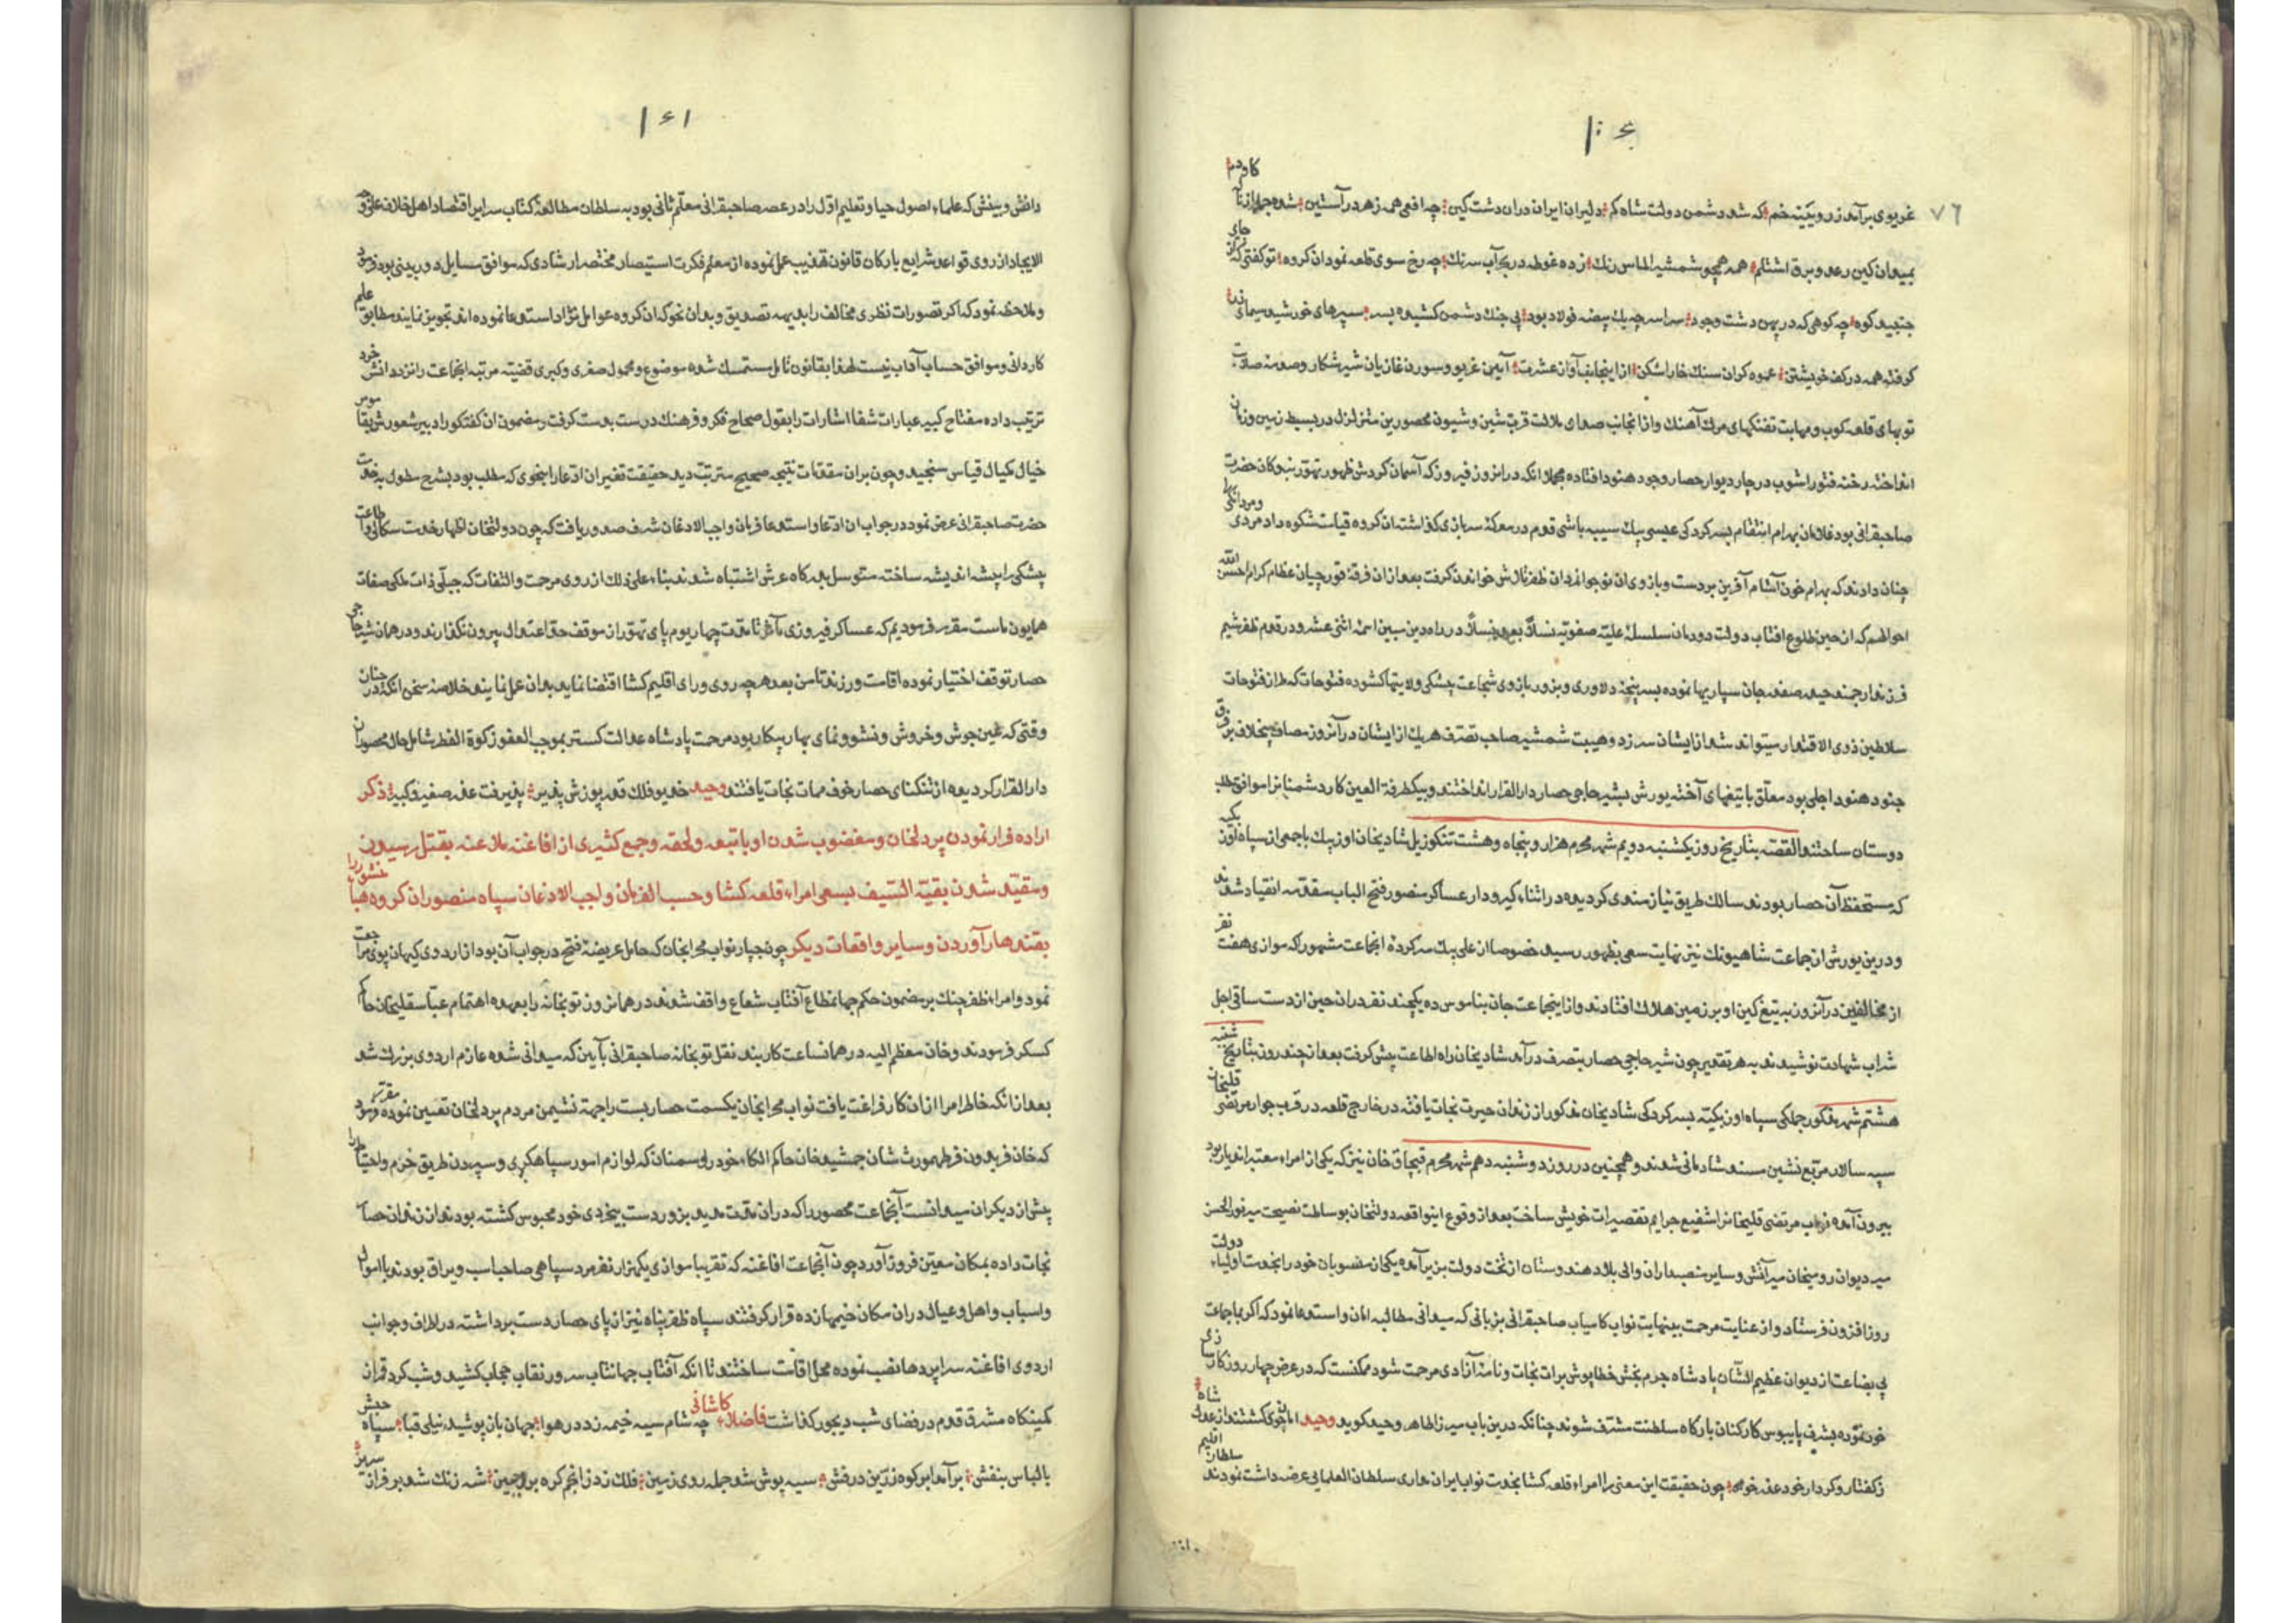 ۷۶
غریوی برآمد ز رویینه خم که شد دشمن دولت شاه کم دلیران ایران دران دشت کین چه افعی همه زهر در آستین
بمیدان کین رعد و برق اشتلم همه همچو شمشیر الماس رنک زده غوطه در بحر آب سرنک چه رخ سوی قلعه نمودان کروه تو کفتی که از جای
جنبید کوه چه کوهی که در پهن دشت وجود سراسر چه یک بیضه فولاد بود پی جنک دشمن کشیده بسر سپرهای خورشید سیمای
کرفته همه در کف خویشتن عمود کران سنک خارا شکن از اینجانب آواز عشرت آیین غریو و سورن غازیان شیر شکار و صدمه صلابت
توبهای قلعه کوب و مهابت تفنکهای مرک آهنک و از انجانب صدای ملالت قرین شین و شیون محصورین متزلزل در بسیط زمین و زمان
انداخته رخنه فتور اشوب در چار دیوار حصار وجود هنود افتاده مجملا انکه در انروز فیروز که آسمان کردش ظهور تهور بندکان حضرت
صاحبقرانی بود غلامان بهرام انتقام بسرکردکی عیسی بیک سیبه باشی قدم در معرکه سربازی کذاشته ان کروه قیامت شکوه داد مردی و مردانکی
چنان دادند که بهرام خون آشام آفرین بر دست و بازوی ان نوجوانان ظفر تلاش خواندن کرفت بعد از ان فرقه قورچیان عظام کرام احسن الله
احوالهم که از حین طلوع افتاب دولت دودمان سلسله علیه صفویه نسلا بعد نسلا در راه دین مبین ائمه اثنی عشر و در قدوم ظفر شیم
فرزند ارجمند حیدر صفدر جان سپاریها نموده بسرپنجه دلاوری و بزور بازوی شجاعت پیشکی ولایتها کشوده فتوحات که طراز فتوحات
سلاطین ذوی الاقتدار میتواند شد از ایشان سر زد و هیبت شمشیر صاحب تصرف هر یک از ایشان در آنروز مصاف
جنود هنود اجلی بود معلق با تیغهای آخته یورش بشیر حاجی حصار دار القرار انداختند و بیکطرفة العین کار دشمنانرا موافق طلب
دوستان ساختند القصه بتاریخ روز یکشنبه دویم شهر محرم هزار و پنجاه و هشت تنکوز ییل شادیخان اوزبک با جمعی از سپاه اوزبکیه
که مستحفظ آن حصار بودند سالک طریق نیازمندی کردیده در اثناء کیر و دار عساکر منصور فتح الباب مقدمه انقیاد شدند
و درین یورش از جماعت شاهیونک نیز نهایت سعی بظهور رسید خصوصا از علی بیک سرکرده انجماعت مشهور که موازی هفت نفر
از مخالفین در آنروز به تیغ کین او بر زمین هلاک افتادند و از اینجماعت جان بناموس ده یکچند نفر دران حین از دست ساقی اجل
شراب شهادت نوشیدند به هر تقدیر چون شیر حاجی حصار بتصرف درآمد شادیخان راه اطاعت پیش کرفت بعد از چند روز بتاریخ شنبه
هشتم شهر مذکور جملکی سپاه اوزبکیه بسرکردکی شادیخان مذکور از زندان حیرت نجات یافته در خارج قلعه در قرب جوار مرتضی قلیخان
سپه سالار مربع نشین مسند شادمانی شدند و همچنین در روز دوشنبه دهم شهر محرم قبچاق خان نیز که یکی از امراء معتبر
بیرون آمده نواب مرتضی قلیخانرا شفیع جرایم تقصیرات خویش ساخت بعد از وقوع اینواقعه دولتخان بوساطت نصیحت میر نور الحسن
میر دیوان رو میخان میر آتش و سایر منصبداران والی بلاد هندوستان از تخت دولت بزیر آمده یکی از منصوبان خود را بخدمت اولیاء دولت
روزافزون فرستاد و از عنایت مرحمت بینهایت نواب کامیاب صاحبقرانی بزبانی که میدانی مطالبه امان و استدعا نمود که اکر بما جماعت
بی بضاعت از دیوان عظیم الشان پادشاه جرم بخش خطاپوش برات نجات و نامه آزادی مرحمت شود ممکنست که در عرض چهار روز
خود نموده بشرف پایبوس کارکنان بارکاه سلطنت مشرف شوند چنانکه درین باب میرزا طاهر وحید کوید وحید امان جوی کشتند از عدل شاه
ز کفتار و کردار خود عذر خواه چون حقیقت این معنی را امراء قلعه کشا بخدمت نواب ایران مداری سلطان العلمایی عرضه داشت نمودند
دانش و بینش که علماء اصول حیا و تعلیم اول را در عصر صاحبقرانی معلم ثانی بود به سلطان مطالعه کتاب سراسر اقتصاد اهل خلاف
الایجاد از روی قواعد شرایع بارکان قانون تهذیب عمل نموده از معلم فکرت استیصار مختصر ارشادی که موافق مسایل دوربینی بود
و ملاحظه نمود که اکر تصورات نظری مخالف را بدیهه تصدیق و بدان نحو که ان کروه عوامل نژاد استدعا نموده اند تجویز نمایند مطابق علم
کاردانی و موافق حساب آداب نیست لهذا بقانون تامل مستمسک شده موضوع و محمول صغری و کبری قضیه مرتبه انجماعت را نزد دانش خرد
ترتیب داده مفتاح کبیر عبارات شفا اشارات را بقول صحاح فکر و فرهنک درست بدست کرفت و مضمون ان کفتکو را دبیر شعورش
خیال مکیال قیاس سنجید و چون بران مقدمات نتیجه صحیح مترتب دید حقیقت تغیر ان ادعا را بنحوی که مطلب بود بشرح مطول بخدمت
حضرت صاحبقرانی عرض نمود در جواب ان ادعا و استدعا فرمان واجب الاذعان شرف صدور یافت که چون دولتخان اظهار خدمت سکالی و اطاعت
پیشکی را پیشه اندیشه ساخته متوسل بدرکاه عرش اشتباه شدند بناء علی ذلک از روی مرحمت و التفات که جبلی ذات ملکی صفات
همایون ماست مقرر فرمودیم که عساکر فیروزی مآثر تا مدت چهار یوم پای تهور از موقف حد اعتدال بیرون نکذارند و در همان شیر حاجی
حصار توقف اختیار نموده اقامت ورزند تا من بعد هر چه روی و رای اقلیم کشا اقتضا نماید بدان عمل نمایند خلاصه سخن انکه در چنان
وقتی که عین جوش و خروش و نشو و نمای بهار پیکار بود مرحمت پادشاه عدالت کستر بموجب العفو زکوة الظفر شامل حال محصوران
دار القرار کردیده از تنکنای حصار خوف ممات نجات یافتند وحید خدیو فلک قدر پوزش پذیر پذیرفت عذر صغیر و کبیر ذکر
اراده فرار نمودن پردلخان و مغضوب شدن او با تبعه و لحقه و جمع کثیری از افاغنه ملاعنه بقتل رسیدن
و مقید شدن بقیة السیف بسعی امراء قلعه کشا و حسب الفرمان واجب الاذعان سپاه منصور ان کروه هباء منثورا را
بقندهار آوردن و سایر واقعات دیکر چون چپار نواب محرابخان که حامل عریضه فتح در جواب آن بود از اردوی کیهان پوی مراجعت
نمود و امراء ظفر چنک بر مضمون حکم جهانمطاع آفتاب شعاع واقف شدند در همانروز توپخانه را بعهده اهتمام عباسقلیخان حاکم
کسکر فرمودند و خان معظم الیه در همانساعت کاربند نقل توپخانه صاحبقرانی بآیین که میدانی شده عازم اردوی بزرک شد
بعد از انکه خاطر امرا از ان کار فراغت یافت نواب محرابخان یکسمت حصار بست را جهة نشیمن مردم پردلخان تعیین نموده مقرر فرمود
که خان فریدون فر طهمورث شان جمشید خان حاکم الکاء خود رو سمنان که لوازم امور سپاهکری و سپردن طریق حزم و احتیاط را
پیش از دیکران میدانست آنجماعت محصور را که دران مدت مدید بزور دست بیخردی خود محبوس کشته بودند از زندان حصار
نجات داده بمکان معین فرود آورد چون آنجماعت افاغنه که تقریبا موازی یکهزار نفر مرد سپاهی صاحب اسب و یراق بودند با اموال
و اسباب و اهل و عیال دران مکان خیمها زده قرار کرفتند سپاه ظفر پناه نیز از پای حصار دست برداشته در اطراف و جوانب
اردوی افاغنه سراپردها نصب نموده محل اقامت ساختند تا انکه آفتاب جهانتاب سر در نقاب حجاب کشید و شب کرد قمر از
کمینکاه مشرق قدم در فضای شب دیجور کذاشت فاضلاء کاشانی چه شام سیه خیمه زد در هوا جهان باز پوشید نیلی قبا سپاه حبش
با لباس بنفش برآمد ابر کوه زرین درفش سیه پوش شد جمله روی زمین فلک زد ز انجم کره بر جبین شه زنک شد بر فراز سریر